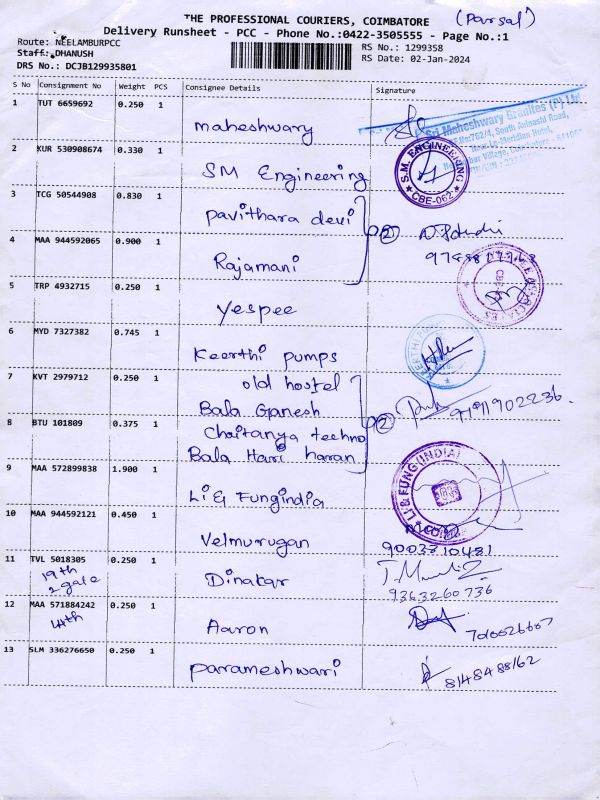 THE PROFESSIONAL COURIERS, COIMBATORE (Parsal)
Delivery Runsheet - PCC - Phone No.:0422-3505555 - Page No.:1
Route: NEELAMBURPCC
Staff: DHANUSH
DRS No.: DCJB129935801
RS No.: 1299358
RS Date: 02-Jan-2024
S No Consignment No Weight PCS Consignee Details Signature
1 TUT 6659692 0.250 1
maheshwary
Sri Maheshwary Granites (P) Ltd
2 KUR 530908674 0.330 1
SM Engineering
S.M. ENGINEERING
CBE-062
3 TCG 50544908 0.830 1
Pavithara devi
4 MAA 944592065 0.900 1
Rajamani
2
5 TRP 4932715 0.250 1
Yespee
6 MYD 7327382 0.745 1
Keerthi pumps
7 KVT 2979712 0.250 1
old hostel
Bala Ganesh
8 BTU 101809 0.375 1
Chaitanya techno
Bala Hari haran
2
9 MAA 572899838 1.900 1
Li & Fungindia
LI & FUNG (INDIA)
10 MAA 944592121 0.450 1
Velmurugan
9003710421
11 TVL 5018305 0.250 1
19th
2 gate
Dinakar
9363260736
12 MAA 571884242 0.250 1
4th
Aaron
13 SLM 336276650 0.250 1
Parameshwari
8148488162